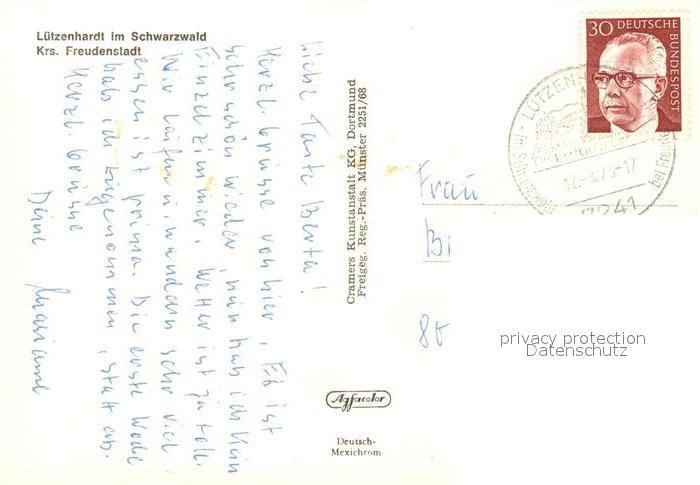 Lützenhardt im Schwarzwald
Krs. Freudenstadt
Liebe Tante Berta!
Herzl. Grüsse von hier, Es ist
sehr schön wieder, nur hab ich kein
Einzelzimmer. Wetter ist ja toll.
Wir laufen u. wandern sehr viel
essen ist prima. Die erste Woche
hab ich zugenommen, statt ab.
Herzl. Grüsse
Deine Marianne
Cramers Kunstanstalt KG, Dortmund
Freigeg. Reg.-Präs. Münster 2251/68
Agfacolor
Deutsch-
Mexichrom
30 DEUTSCHE
BUNDESPOST
LÜTZENH
im Schwarzwald
bei Freuden
-17
7241
Frau
Bi
privacy protection
Datenschutz